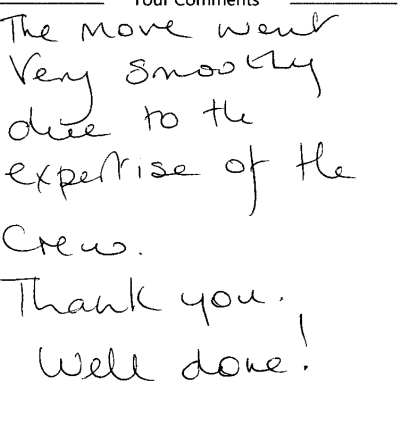 Your Comments
The move went
Very smoothly
due to the
expertise of the
Crew.
Thank you.
Well done!